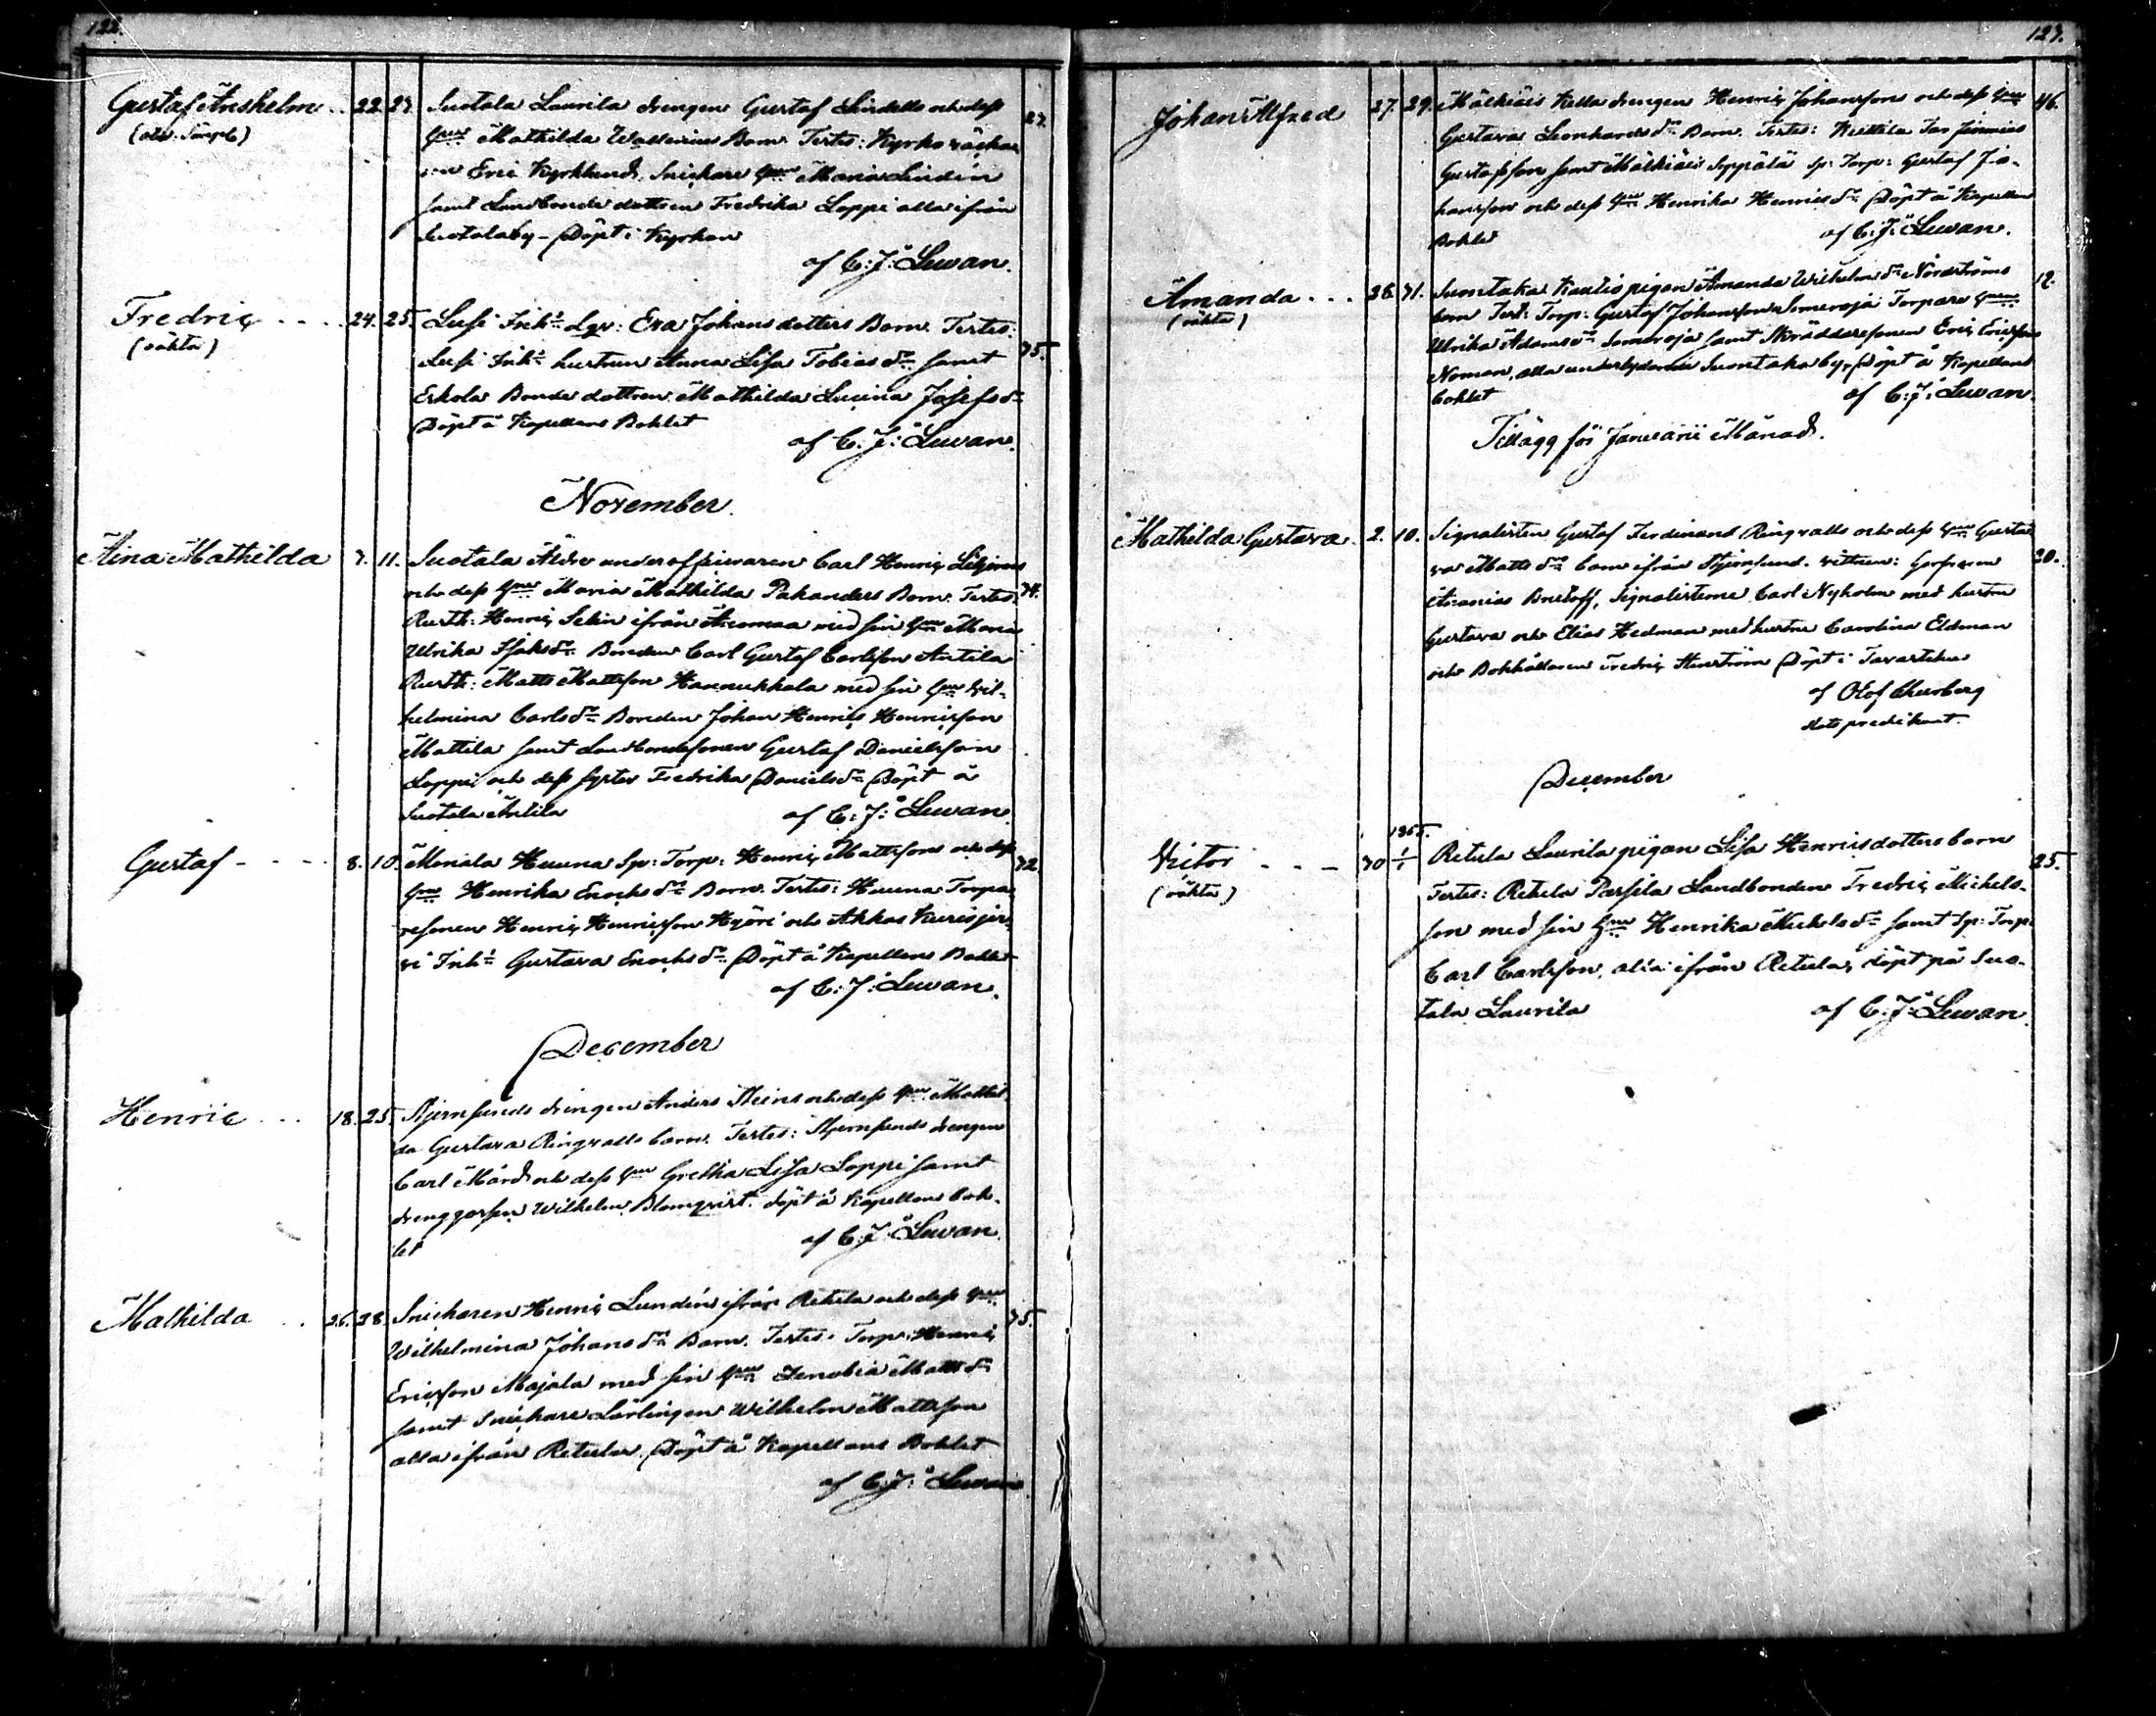 122.
Gustaf Anshelm .. 22. 23. Suotala Laurila drengen Gustaf Lindells och dess 23.
Hru Mathilda Wallenii Barn. Testes: Kyrkoväcka-
ren Eric Kyrklund, Snickare Hru Maria Lindén
samt Landbonde dottren Fredrika Loppi alla ifrån
Suotala by – Döpt i Kyrkan
af C: J: Lewan.
Fredric .... 24. 25. Inh: Eva Johansdotters Barn. Testes:
(oäkta)
Inh: hustrun Anna Lisa Tobiasdr samt 35.
Eskola Bonde dottren Mathilda Josefsdr
Döpt å Kapellans Bohlet
af C. J: Lewan.
November.
Aina Mathilda 7. 11. Suotala Äldre underofficeraren Carl Henric
och dess Hru Maria Mathilda Pakanders Barn. Testes: 34.
Rusth: Henric ifrån med sin Hru Maria
Ulrika Isaksdr Bonden Carl Gustaf Carlsson Antila
Rusth: Matts Mattsson Hannukkala med sin Hru Wil-
helmina Carlsdr Bonden Johan Henric Henricsson
Mattila samt Landbondesonen Gustaf Danielsson
Loppi och dess syster Fredrika Danielsdr Döpt å
Suotala Antila af C: J: Lewan.
Gustaf - - - - 8. 10. Huuna Sp: Torp: Henric Mattsson och dess 32.
Hru Henrika Enochsdr Barn. Testes: Huuna Torpa-
resonen Henric Henricsson och Akkas Kurisjär-
vi Inh: Gustava Enochsdr Döpt å Kapellans Bohlet
af C: J: Lewan.
December
Henric ... 18. 25. Stjernsunds drengen Anders och dess Hru Mathil-
da Gustava Ringvalls barn. Testes: Stjernsunds drengen
Carl Mård och dess Hru Gretha Lisa Loppi samt
drenggossen Wilhelm Blomqvist. döpt å Kapellans boh-
let af C: J: Lewan.
Mathilda .. 26. 28. Snickaren Henric Lundén ifrån Retula och dess Hru 35.
Wilhelmina Johansdr Barn. Testes: Torp: Henric
Ericsson Majala med sin Hru Zenobia Mattsdr
samt Snickare Lärlingen Wilhelm Mattsson
alla ifrån Retula. Döpt å Kapellans Bohlet
af C: J: Lewan
123.
Johan Alfred 27. 29. Mälkiäis Kella drengen Henric Johansson och dess Hru 46.
Gustava Leonhardsdr Barn. Testes:
Gustafsson samt Mälkiäis Seppälä Sp: Torp: Gustaf Jo-
hansson och dess Hru Henrika Henricsdr Döpt å Kapellans
Bohlet af C: J: Lewan.
Amanda ... 28. 31. Suontaka pigan Amanda Wilhelmsdr Nordströms 12.
(oäkta)
barn Test: Torp: Gustaf Johansson Someroja Torpare Hru
Ulrika Adamsdr Someroja samt Skräddaresonen Eric Ericsson
Noman, alla underlydande Suontaka by, Döpt å Kapellans
bohlet af C: J: Lewan.
Tillägg för Januarii Månad.
Mathilda Gustava. 2. 10. Signalisten Gustaf Ferdinand Ringvalls och dess Hru Gusta-
va Mattsdr barn ifrån Stjernsund. vittnen: 20.
Ananias Signalisterne Carl Nyholm med hustru
Gustava och Elias Hedman med hustru Carolina Eldman
och Bokhållaren Fredric Döpt i Tavastehus
af Olof
slottspredikant.
December
1865.
Victor ... 30 1/1 Retula Laurila pigan Lisa Henricsdotters barn 25.
(oäkta)
Testes: Retula Parsila Landbonden Fredric Michels-
son med sin Hru Henrika Michelsdr samt Sp: Torp:
Carl Carlsson, alla ifrån Retula, döpt på Suo-
tala Laurila af C: J: Lewan.